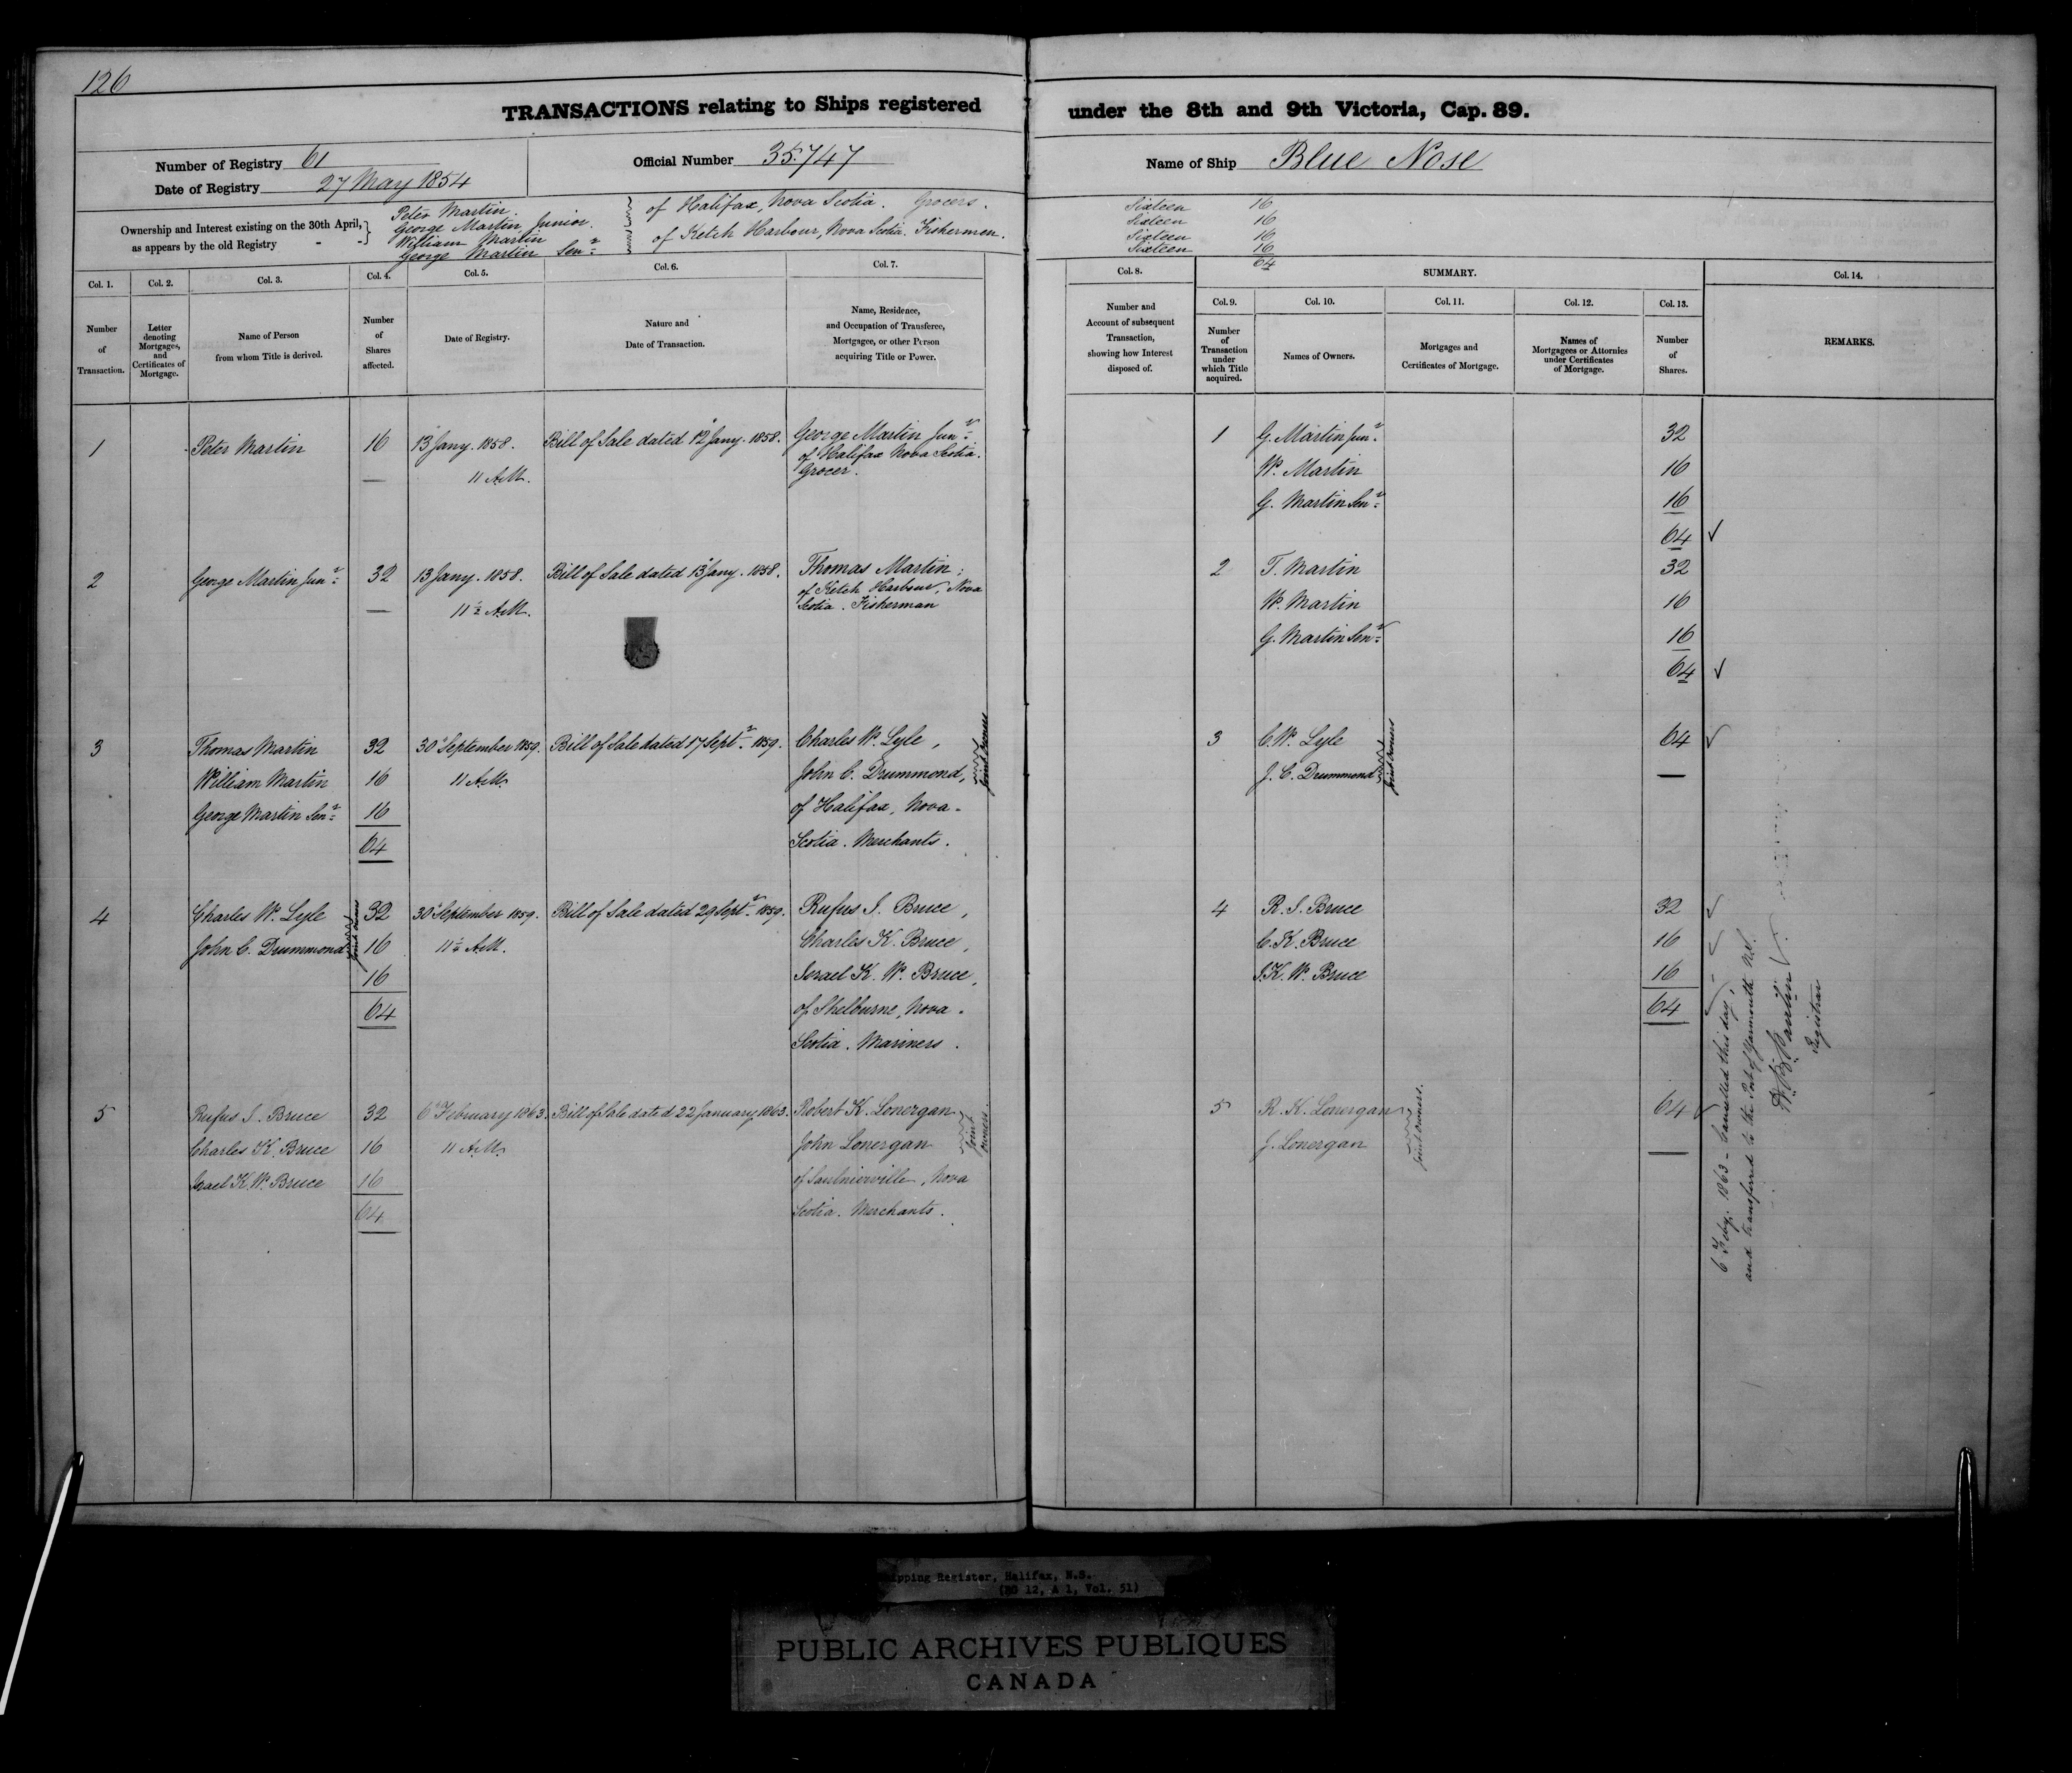 126
TRANSACTIONS relating to Ships registered under the 8th and 9th Victoria, Cap. 89.
Number of Registry 61
Date of Registry 27 May 1854
Official Number 35.747
Name of Ship Blue Nose
Ownership and Interest existing on the 30th April, as appears by the old Registry
Peter Martin
George Martin Junior. } of Halifax, Nova Scotia. Grocers.
William Martin
George Martin Senr } of Ketch Harbour, Nova Scotia. Fishermen.
Sixteen 16
Sixteen 16
Sixteen 16
Sixteen 16
64
Col. 1. Number of Transaction.
Col. 2. Letter denoting Mortgages, and Certificates of Mortgage.
Col. 3. Name of Person from whom Title is derived.
Col. 4. Number of Shares affected.
Col. 5. Date of Registry.
Col. 6. Nature and Date of Transaction.
Col. 7. Name, Residence, and Occupation of Transferee, Mortgagee, or other Person acquiring Title or Power.
Col. 8. Number and Account of subsequent Transaction, showing how Interest disposed of.
SUMMARY.
Col. 9. Number of Transaction under which Title acquired.
Col. 10. Names of Owners.
Col. 11. Mortgages and Certificates of Mortgage.
Col. 12. Names of Mortgagees or Attornies under Certificates of Mortgage.
Col. 13. Number of Shares.
Col. 14. REMARKS.
1 Peter Martin 16 13 Jany. 1858. Bill of Sale dated 12 Jany. 1858. George Martin Junr
11 A.M. of Halifax Nova Scotia.
Grocer.
1 G. Martin Junr 32
W. Martin 16
G. Martin Senr 16
64 ✓
2 George Martin Junr 32 13 Jany. 1858. Bill of Sale dated 13 Jany. 1858. Thomas Martin
11½ A.M. of Ketch Harbour, Nova
Scotia. Fisherman
2 T. Martin 32
W. Martin 16
G. Martin Senr 16
64 ✓
3 Thomas Martin 32 30 September 1859. Bill of Sale dated 17 Septr 1859. Charles W. Lyle,
William Martin 16 11 A.M. John C. Drummond, Joint Owners
George Martin Senr 16 of Halifax, Nova
64 Scotia. Merchants.
3 C. W. Lyle 64 ✓
J. C. Drummond Joint Owners
4 Charles W. Lyle 32 30 September 1859. Bill of Sale dated 29 Septr 1859. Rufus S. Bruce,
John C. Drummond Joint Owners 16 11½ A.M. Charles K. Bruce,
16 Israel K. W. Bruce,
64 of Shelburne, Nova
Scotia. Mariners.
4 R. S. Bruce 32 ✓
C. K. Bruce 16
I. K. W. Bruce 16
64
5 Rufus S. Bruce 32 6 February 1863. Bill of Sale dated 22 January 1863. Robert K. Lonergan
Charles K. Bruce 16 11 A.M. John Lonergan Joint owners.
Israel K. W. Bruce 16 of Saulnierville, Nova
64 Scotia. Merchants.
5 R. K. Lonergan 64 ✓
J. Lonergan Joint Owners.
6 Feby. 1863 - Cancelled this day,
and transferred to the Port of Yarmouth N.S.
Registrar
Shipping Register, Halifax, N.S.
(RG 12, A 1, Vol. 51)
PUBLIC ARCHIVES PUBLIQUES
CANADA